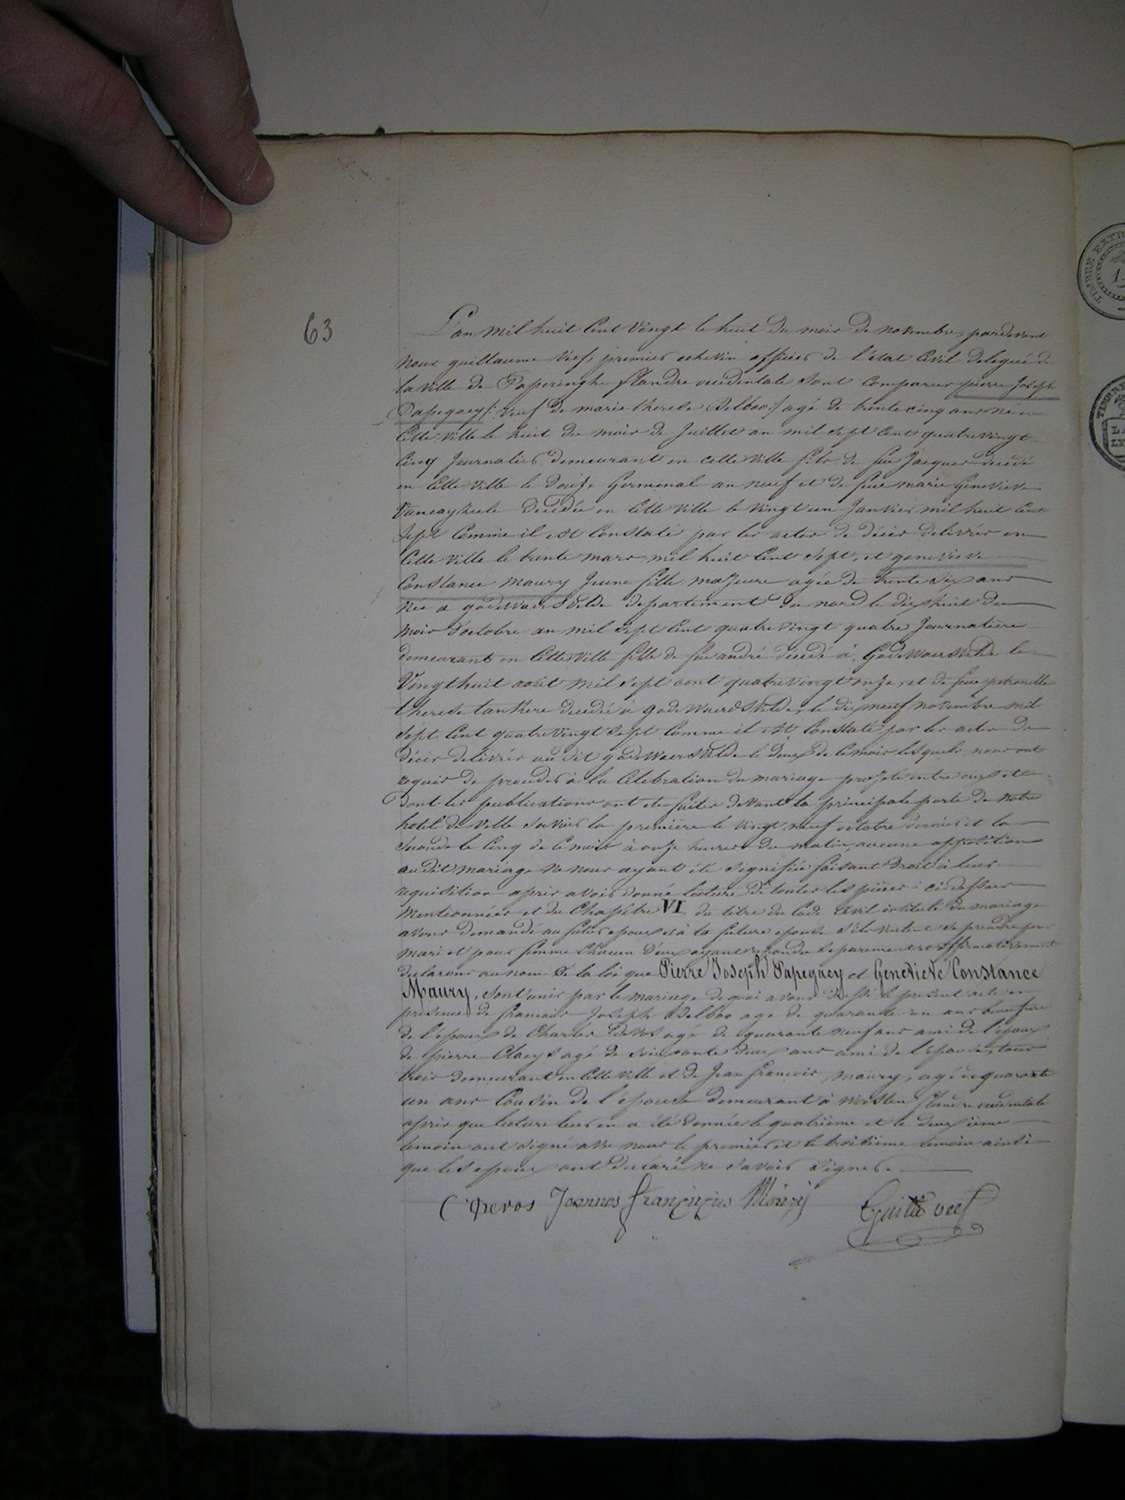 63
L'an mil huit Cent Vingt le huit du mois de novembre, pardevant
nous guillaume Veeß premier echevin officier de l'etat Civil delegué de
la Ville de Poperinghe flandre occidentale Sont Comparus pierre Joseph
Papegaey / Veuf de marie therese Delboo / agé de trente cinq ans né en
Cette Ville le huit du mois de Juillet an mil Sept Cent quatre vingt
Cinq Journalier demeurant en cette Ville fils de feu Jacques decedé
en Cette Ville le Douze Germenal an neuf et de feue marie Genevieve
decedée en Cette Ville le Vingt un Janvier mil huit Cent
Sept Comme il est Constaté par les actes de décès délivrés en
Cette Ville le trente mars mil huit Cent Sept, et genevieve
Constance Maury Jeune fille majeure agée de trente Six ans
Née a godewaersvelde departement du nord le dix huit du
mois d'octobre an mil Sept Cent quatre Vingt quatre Journaliere
demeurant en Cette Ville fille de feu andré decedé à Godewaersvelde le
Vingt huit août mil Sept cent quatre Vingt onze, et de feue petronille
therese decedée à godewaersvelde, le dix neuf novembre mil
Sept Cent quatre Vingt Sept Comme il est Constaté par les actes de
décès délivrés au dit godewaersvelde le deux de ce mois lesquels nous ont
requis de proceder à la Célébration du mariage projeté entre eux et
Dont les publications ont été faites devant la principale porte de notre
hotel de Ville Savoir la premiere le vingt neuf octobre dernier et la
Seconde le Cinq de ce mois à onze heures du matin, aucune opposition
au dit mariage ne nous ayant été Signifiée faisant Droit à leur
requisition après avoir donné lecture de toutes les pieces ci dessus
Mentionnées et du Chapitre VI du titre du Code Civil intitulé du mariage
avons demandé au futur epoux et à la future epouse S'ils veulent Se prendre pour
mari et pour femme Chacun D'eux ayant repondu Separement et affirmativement
declarons au nom de la loi que Pierre Joseph Papegaey et Genevieve Constance
Maury, Sont unis par le mariage de quoi avons dressé le present acte en
presence de francois Joseph Delboo agé de quarante un ans beaufrere
de l'epoux de Charles Devos agé de quarante neuf ans ami de l'epoux
de pierre Claeys agé de Soixante deux ans ami de l'epouse, tous
trois demeurant en Cette Ville et de Jean francois Maury, agé de quarante
un ans Cousin de l'epouse demeurant à flandre occidentale
après que lecture leur en a été donnée le quatrième et le deuxième
temoin ont Signé avec nous le premier et le troisième temoin ainsi
que les epoux ont declaré ne Savoir Signer.
C Devos Joannes franciscus Mouri Guille veeß